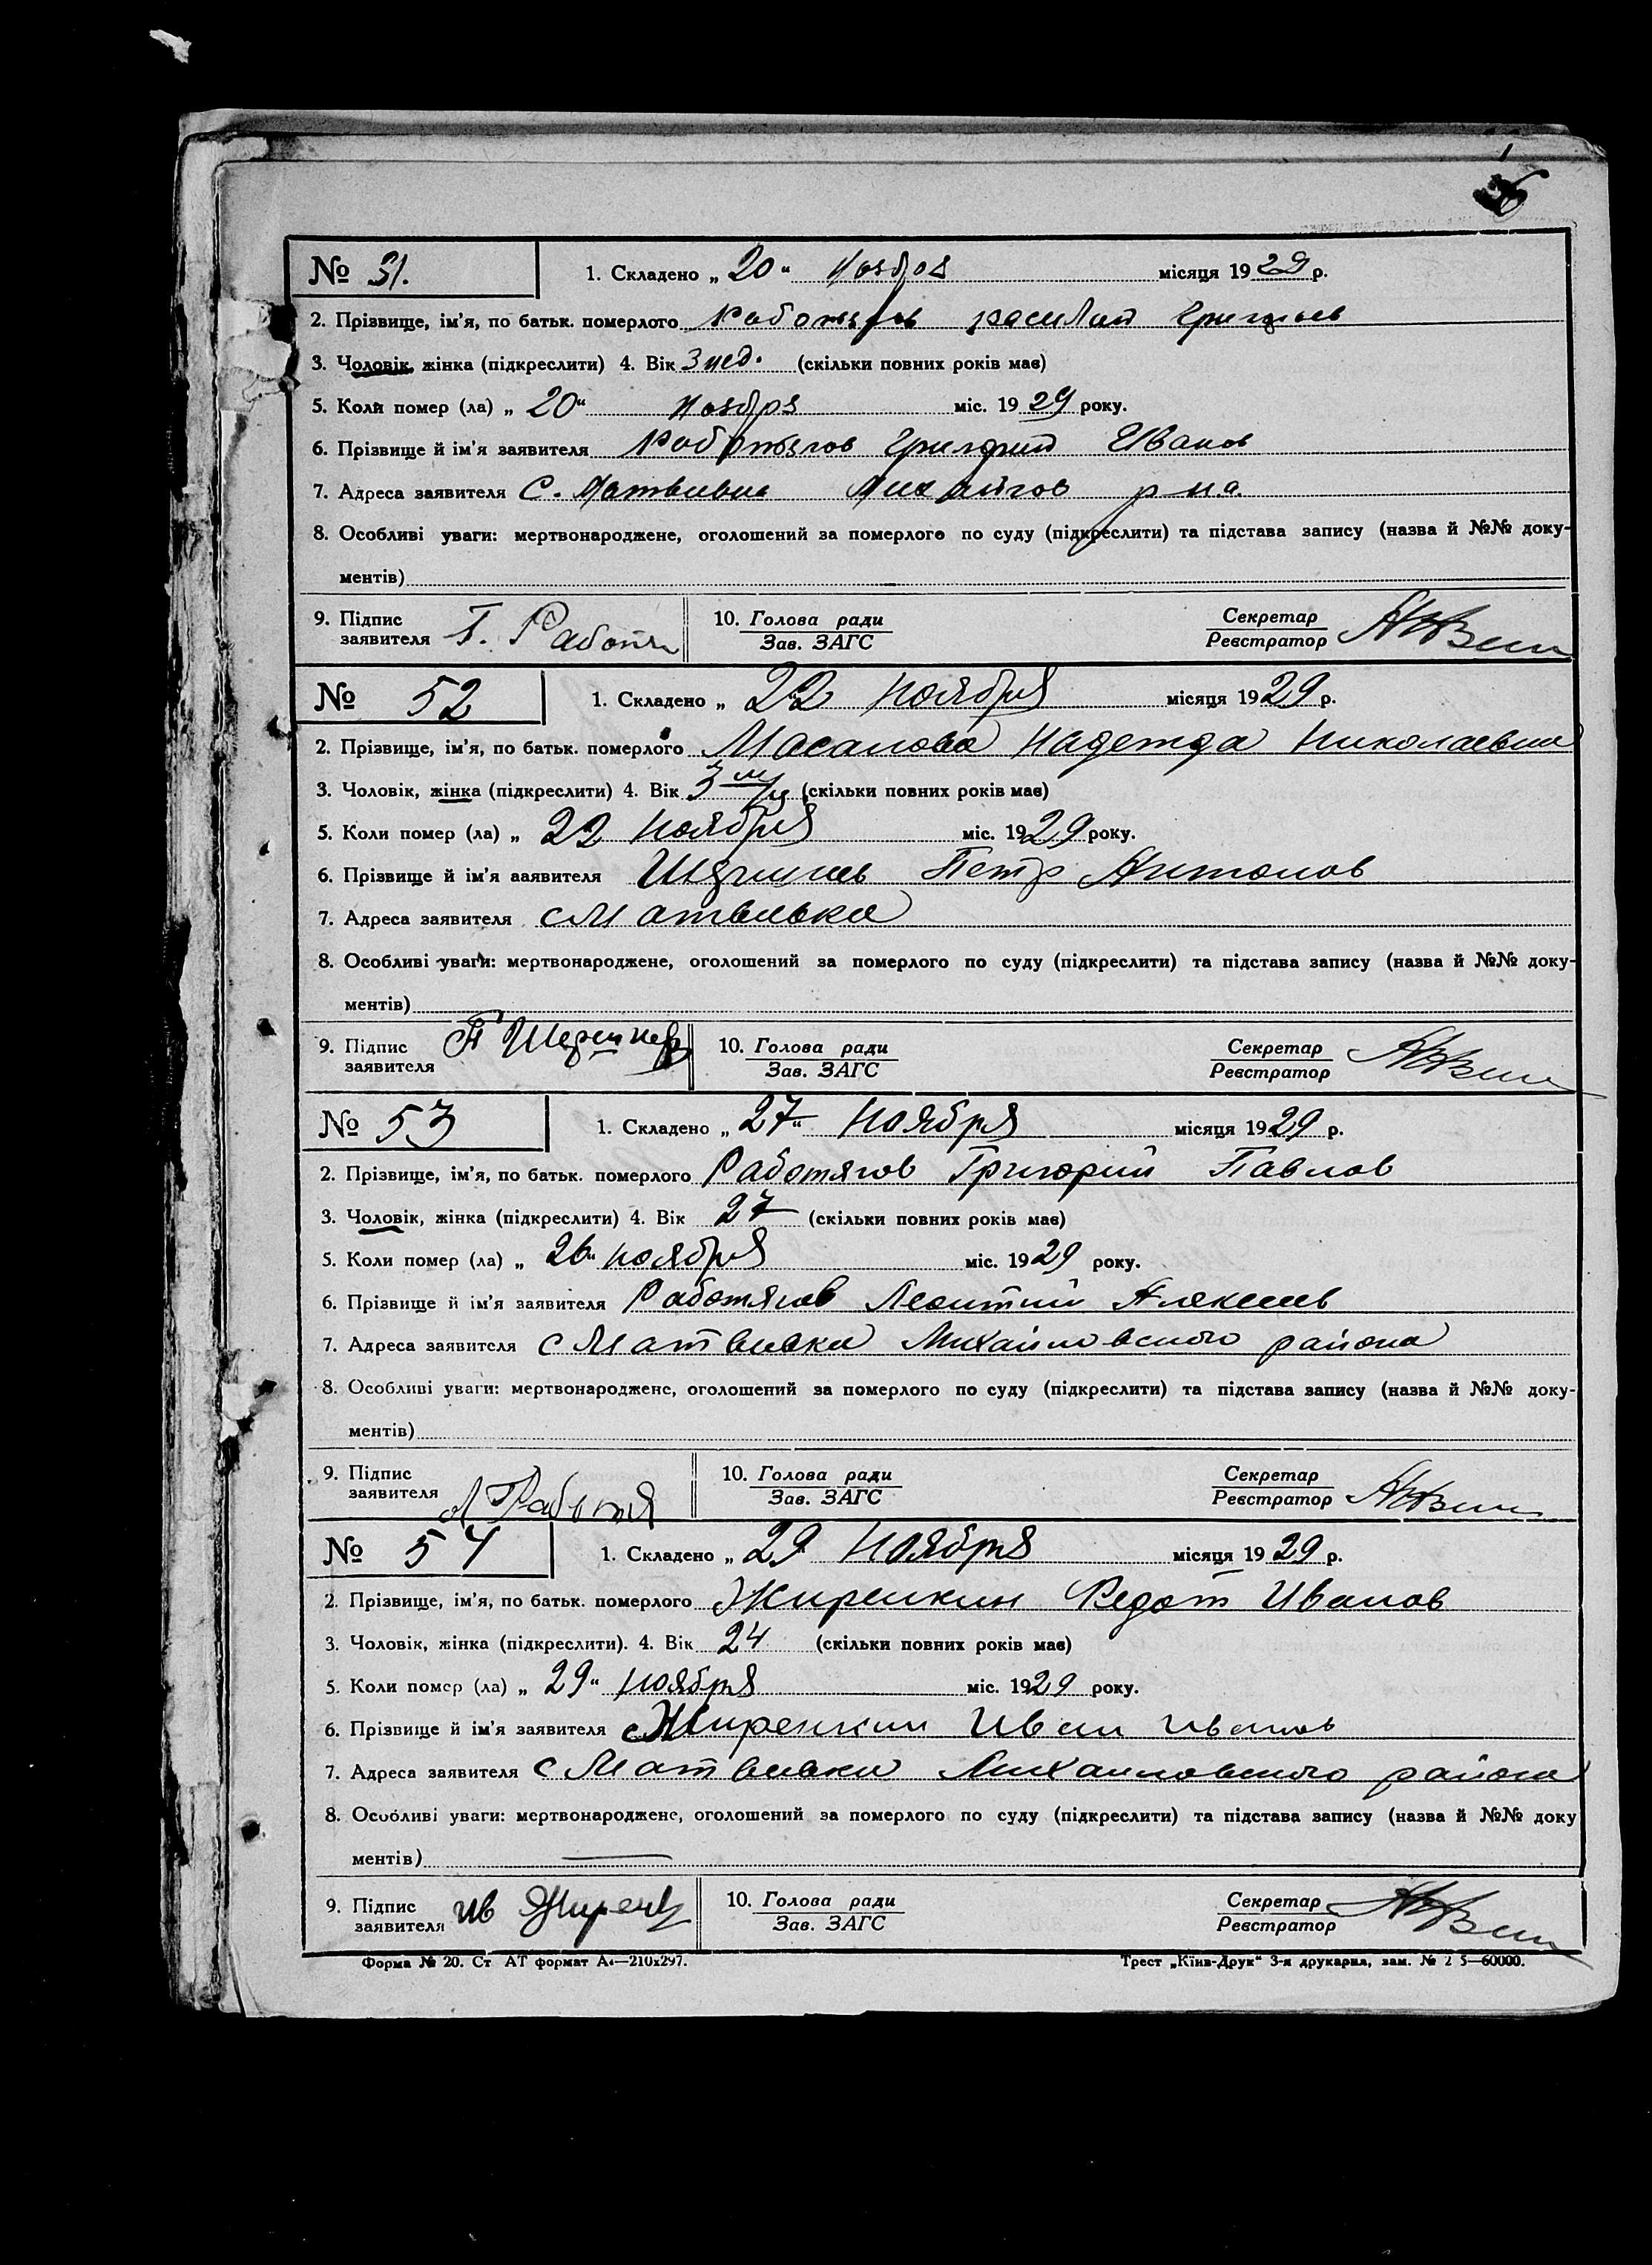 № 51. 1. Складено „ 20 “ ноября місяця 1929 р.
2. Прізвище, ім’я, по батьк. померлого Работягов Василий Григорьев
3. Чоловік, жінка (підкреслити) 4. Вік 3 нед. (скільки повних років має)
5. Коли помер (ла) „ 20 “ ноября міс. 1929 року.
6. Прізвище й ім’я заявителя Работягов Григорий Иванов
7. Адреса заявителя С. Матвивка р на.
8. Особливі уваги: мертвонароджене, оголошений за померлого по суду (підкреслити) та підстава запису (назва й №№ доку-
ментів)
9. Підпис заявителя Г. Работя 10. Голова ради Зав. ЗАГС Секретар Реєстратор
№ 52 1. Складено „ 22 ноября місяця 1929 р.
2. Прізвище, ім’я, по батьк. померлого Масалова Надежда Николаевна
3. Чоловік, жінка (підкреслити) 4. Вік 3 (скільки повних років має)
5. Коли помер (ла) „ 22 ноября міс. 1929 року.
6. Прізвище й ім’я заявителя Петр Антонов
7. Адреса заявителя с Матвивка
8. Особливі уваги: мертвонароджене, оголошений за померлого по суду (підкреслити) та підстава запису (назва й №№ доку-
ментів)
9. Підпис заявителя П 10. Голова ради Зав. ЗАГС Секретар Реєстратор
№ 53 1. Складено „ 27 “ ноября місяця 1929 р.
2. Прізвище, ім’я, по батьк. померлого Работягов Григорий Павлов
3. Чоловік, жінка (підкреслити) 4. Вік 27 (скільки повних років має)
5. Коли помер (ла) „ 26 “ ноября міс. 1929 року.
6. Прізвище й ім’я заявителя Работягов Леонтий Алексеев
7. Адреса заявителя с Матвивка Михайловского района
8. Особливі уваги: мертвонароджене, оголошений за померлого по суду (підкреслити) та підстава запису (назва й №№ доку-
ментів)
9. Підпис заявителя Л Работя 10. Голова ради Зав. ЗАГС Секретар Реєстратор
№ 54 1. Складено „ 29 ноября місяця 1929 р.
2. Прізвище, ім’я, по батьк. померлого Жиренкин Федот Иванов
3. Чоловік, жінка (підкреслити). 4. Вік 24 (скільки повних років має)
5. Коли помер (ла) „ 29 “ ноября міс. 1929 року.
6. Прізвище й ім’я заявителя Жиренкин Иван Иванов
7. Адреса заявителя с Матвивка Михайловского района
8. Особливі уваги: мертвонароджене, оголошений за померлого по суду (підкреслити) та підстава запису (назва й №№ доку
ментів)
9. Підпис заявителя Ив Жирен 10. Голова ради Зав. ЗАГС Секретар Реєстратор
Форма № 20. Ст АТ формат А₄—210х297. Трест „Київ-Друк“ 3-я друкарня, зам. № 2 5—60000.